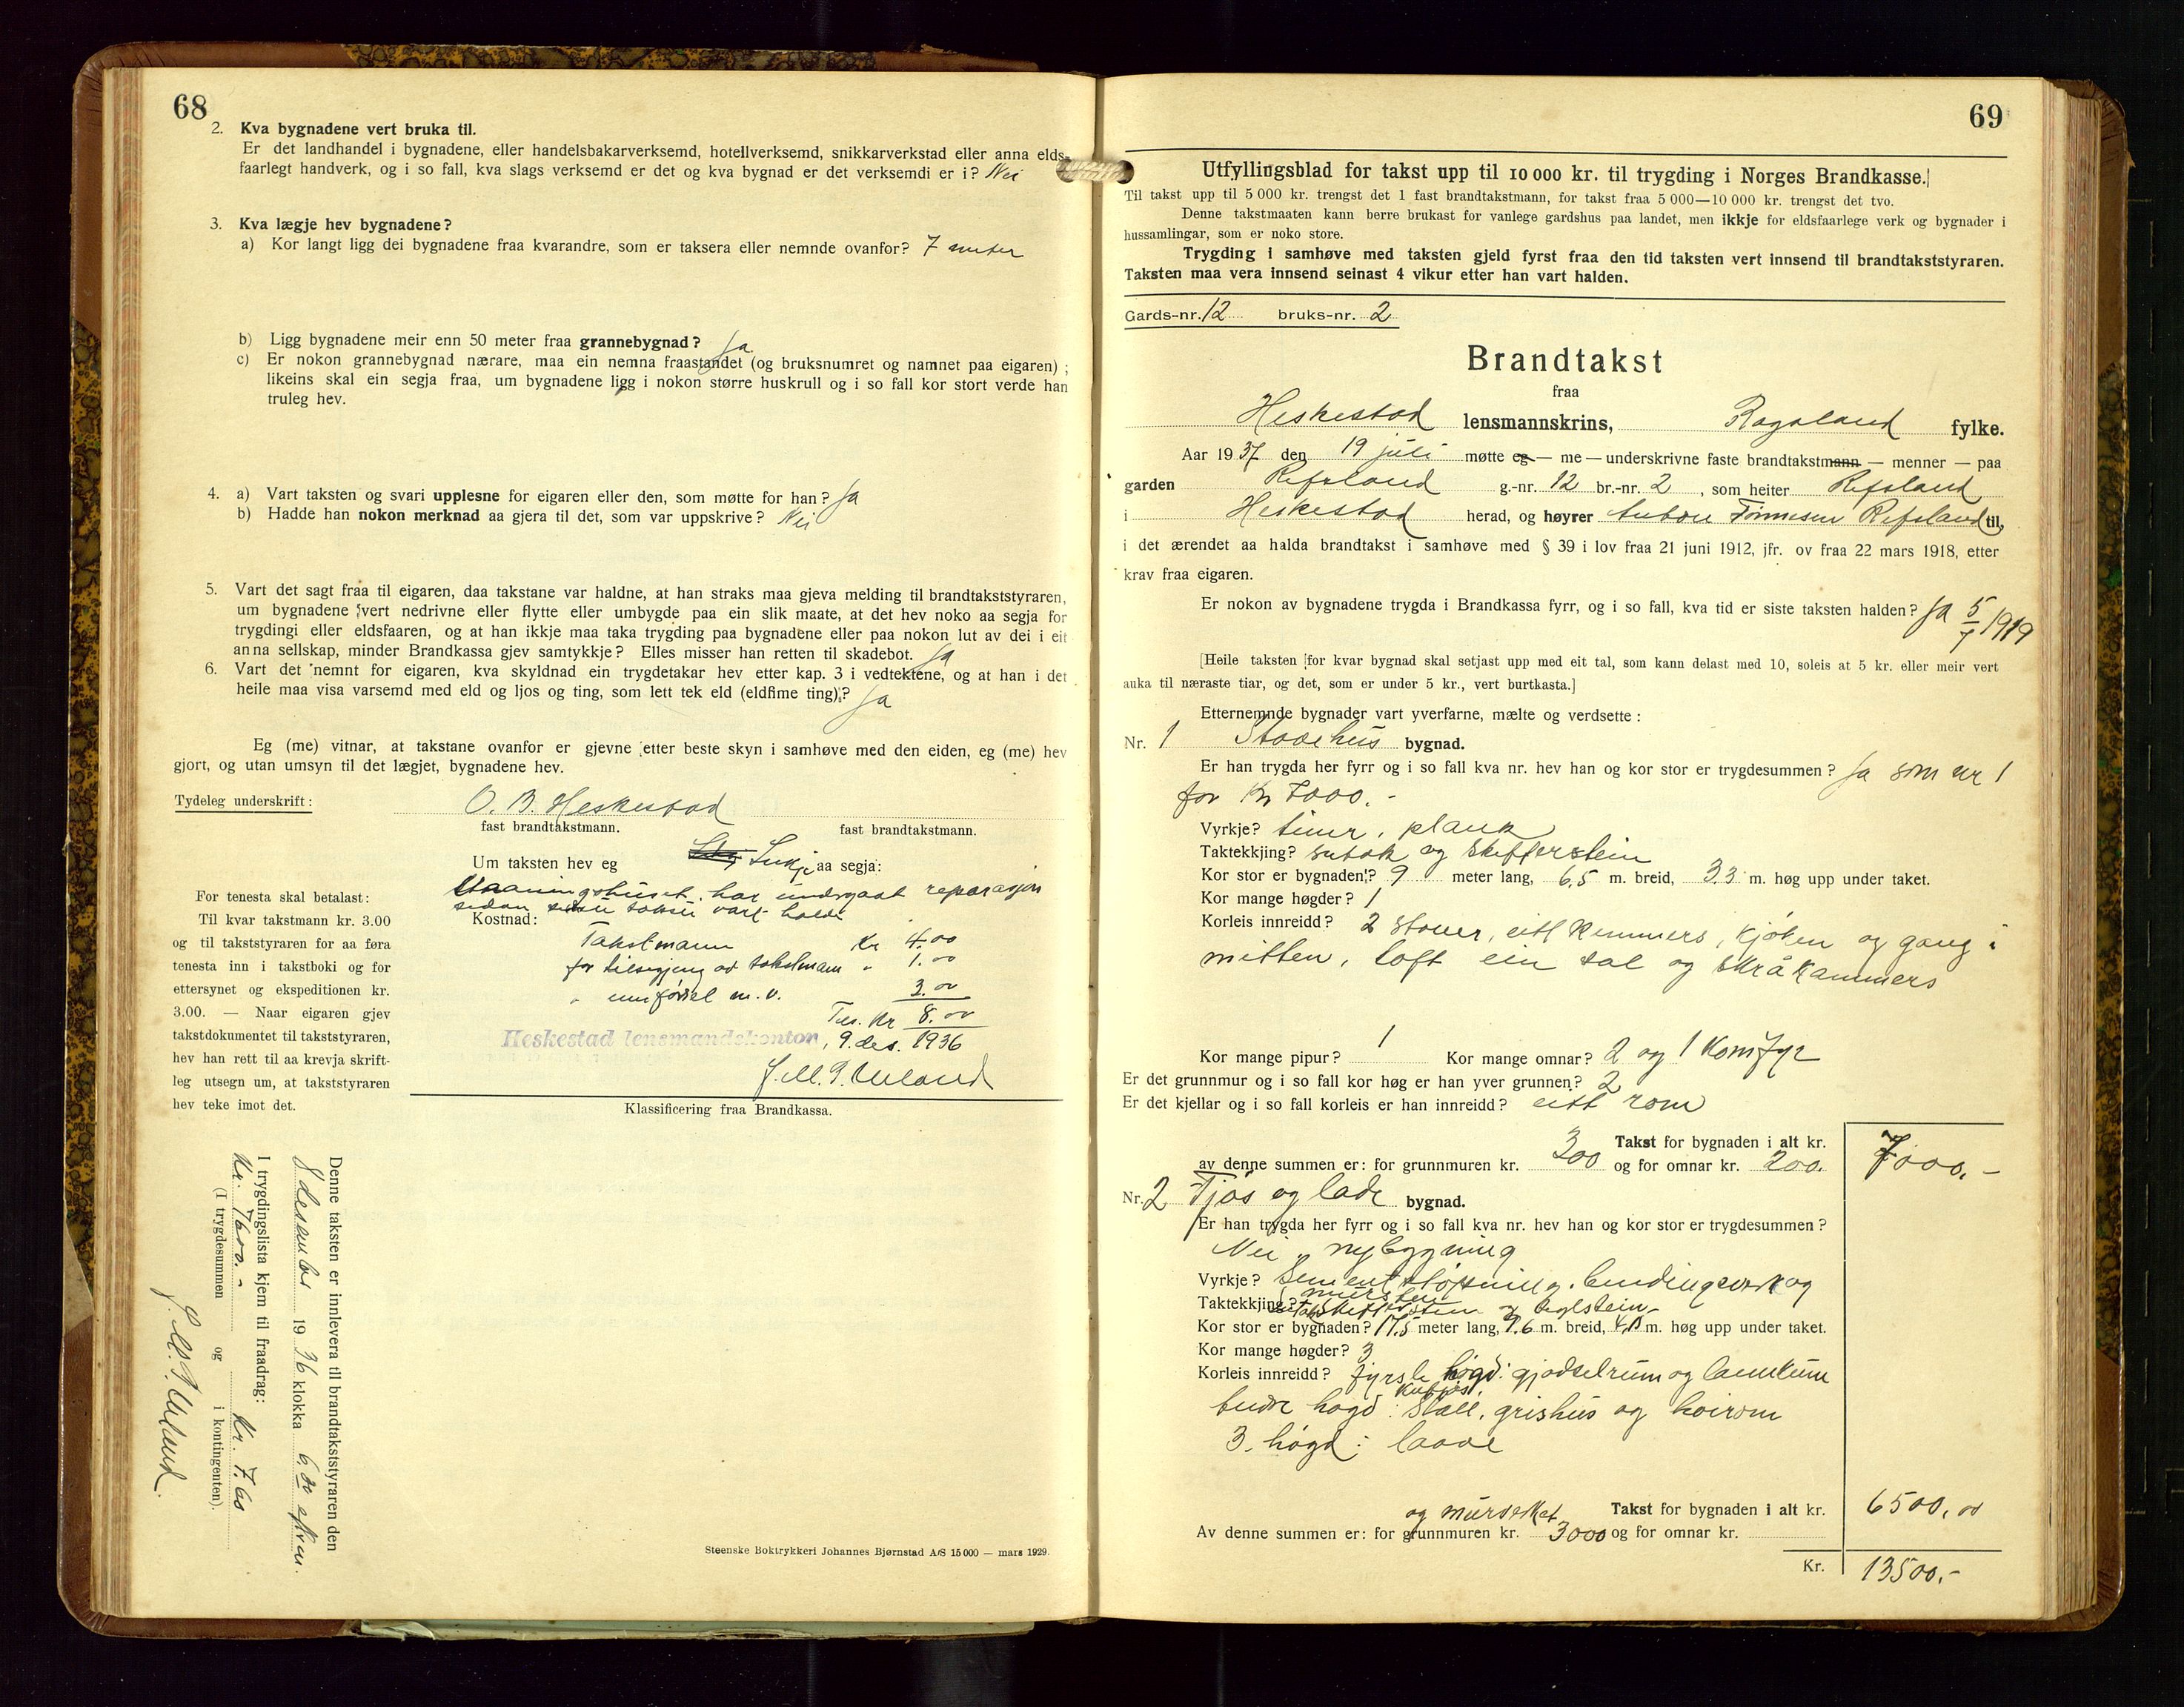 68
2. Kva bygnadene vert bruka til.
Er det landhandel i bygnadene, eller handelsbakarverksemd, hotellverksemd, snikkarverkstad eller anna elds-
faarlegt handverk, og i so fall, kva slags verksemd er det og kva bygnad er det verksemdi er i? Nei
3. Kva lægje hev bygnadene?
a) Kor langt ligg dei bygnadene fraa kvarandre, som er taksera eller nemnde ovanfor? 7 meter
b) Ligg bygnadene meir enn 50 meter fraa grannebygnad? Ja
c) Er nokon grannebygnad nærare, maa ein nemna fraastandet (og bruksnumret og namnet paa eigaren) ;
likeins skal ein segja fraa, um bygnadene ligg i nokon større huskrull og i so fall kor stort verde han
truleg hev.
4. a) Vart taksten og svari upplesne for eigaren eller den, som møtte for han? Ja
b) Hadde han nokon merknad aa gjera til det, som var uppskrive? Nei
5. Vart det sagt fraa til eigaren, daa takstane var haldne, at han straks maa gjeva melding til brandtakststyraren,
um bygnadene vert nedrivne eller flytte eller umbygde paa ein slik maate, at det hev noko aa segja for
trygdingi eller eldsfaaren, og at han ikkje maa taka trygding paa bygnadene eller paa nokon lut av dei i eit
anna sellskap, minder Brandkassa gjev samtykkje? Elles misser han retten til skadebot. Ja
6. Vart det nemnt for eigaren, kva skyldnad ein trygdetakar hev etter kap. 3 i vedtektene, og at han i det
heile maa visa varsemd med eld og ljos og ting, som lett tek eld (eldfime ting)? Ja
Eg (me) vitnar, at takstane ovanfor er gjevne etter beste skyn i samhøve med den eiden, eg (me) hev
gjort, og utan umsyn til det lægjet, bygnadene hev.
Tydeleg underskrift: O. B. Heskestad
fast brandtakstmann. fast brandtakstmann.
Um taksten hev eg Inkje aa segja:
Vaaningshuset har undergaat reparasjon
sedan siste takst vart halde
Kostnad:
Takstmann Kr 4.00
for tilsigjing av takstmann " 1.00
" innførsel m. v. 3.00
Tils. Kr 8.00
Heskestad lensmandskontor, 9. des. 1936
Klassificering fraa Brandkassa.
For tenesta skal betalast:
Til kvar takstmann kr. 3.00
og til takststyraren for aa føra
tenesta inn i takstboki og for
ettersynet og ekspeditionen kr.
3.00. — Naar eigaren gjev
takstdokumentet til takststyraren,
hev han rett til aa krevja skrift-
leg utsegn um, at takststyraren
hev teke imot det.
Denne taksten er innlevera til brandtakststyraren den
8 desember 19 36 klokka 6.00 efterm.
I trygdingslista kjem til fraadrag:
Kr. 7600.- Kr. 7.60
(I trygdesummen og i kontingenten).
Steenske Boktrykkeri Johannes Bjørnstad A/S 15 000 — mars 1929.
69
Utfyllingsblad for takst upp til 10 000 kr. til trygding i Norges Brandkasse.
Til takst upp til 5 000 kr. trengst det 1 fast brandtakstmann, for takst fraa 5 000—10 000 kr. trengst det tvo.
Denne takstmaaten kann berre brukast for vanlege gardshus paa landet, men ikkje for eldsfaarlege verk og bygnader i
hussamlingar, som er noko store.
Trygding i samhøve med taksten gjeld fyrst fraa den tid taksten vert innsend til brandtakststyraren.
Taksten maa vera innsend seinast 4 vikur etter han vart halden.
Gards-nr. 12 bruks-nr. 2
Brandtakst
fraa
Heskestad lensmannskrins, Rogaland fylke.
Aar 19 37 den 19 juli møtte eg — me — underskrivne faste brandtakstmann — menner — paa
garden Refsland g.-nr. 12 br.-nr. 2 , som heiter Refsland
i Heskestad herad, og høyrer Anton Tønnesen Refsland til,
i det ærendet aa halda brandtakst i samhøve med § 39 i lov fraa 21 juni 1912, jfr. ov fraa 22 mars 1918, etter
krav fraa eigaren.
Er nokon av bygnadene trygda i Brandkassa fyrr, og i so fall, kva tid er siste taksten halden? Ja 5/7 1919
[Heile taksten for kvar bygnad skal setjast upp med eit tal, som kann delast med 10, soleis at 5 kr. eller meir vert
auka til næraste tiar, og det, som er under 5 kr., vert burtkasta.]
Etternemnde bygnader vart yverfarne, mælte og verdsette :
Nr. 1 Stovehus bygnad.
Er han trygda her fyrr og i so fall kva nr. hev han og kor stor er trygdesummen? Ja som nr 1
for Kr 7000.-
Vyrkje? timr, plank
Taktekkjing? sutak og skifferstein
Kor stor er bygnaden? 9 meter lang, 6,5 m. breid, 3.3 m. høg upp under taket.
Kor mange høgder? 1
Korleis innreidd? 2 stover, eitt kammers, kjøken og gang i
mitten, loft ein sal og skråkammers
Kor mange pipur? 1 Kor mange omnar? 2 og 1 Komfyr
Er det grunnmur og i so fall kor høg er han yver grunnen? 2
Er det kjellar og i so fall korleis er han innreidd? eitt rom
Takst for bygnaden i alt kr. 7000,-
av denne summen er: for grunnmuren kr. 300 og for omnar kr. 200.
Nr. 2 Fjøs og lade bygnad.
Er han trygda her fyrr og i so fall kva nr. hev han og kor stor er trygdesummen?
Nei, nybygning
Vyrkje? Sementstøpning, bindingsverk og
mursten
Taktekkjing? sutak skifferstein og teglstein
Kor stor er bygnaden? 17,5 meter lang, 9.6 m. breid, m. høg upp under taket.
Kor mange høgder? 3
Korleis innreidd? fyrste høgd: gjødselrum og
kufjøs,
høgd: Stall, grishus og hoirom
3. høgd: laave
Takst for bygnaden i alt kr. 6500,00
og murverket
Av denne summen er: for grunnmuren kr. 3000 og for omnar kr.
Kr. 13500.-